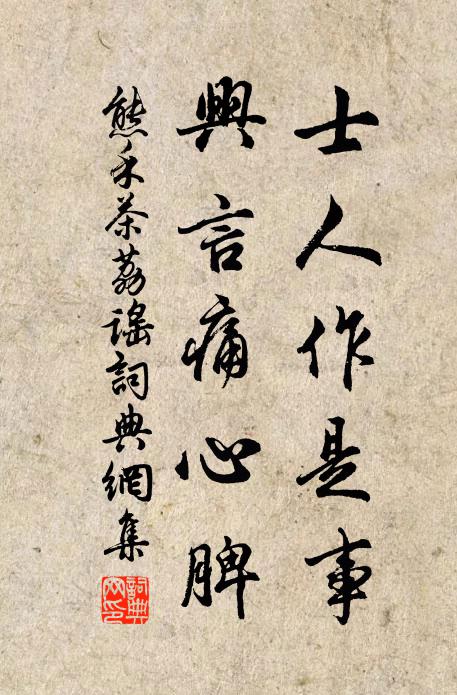 士人作是事
興言痛心脾
熊禾茶荔謠詞典網集
詞典
網印